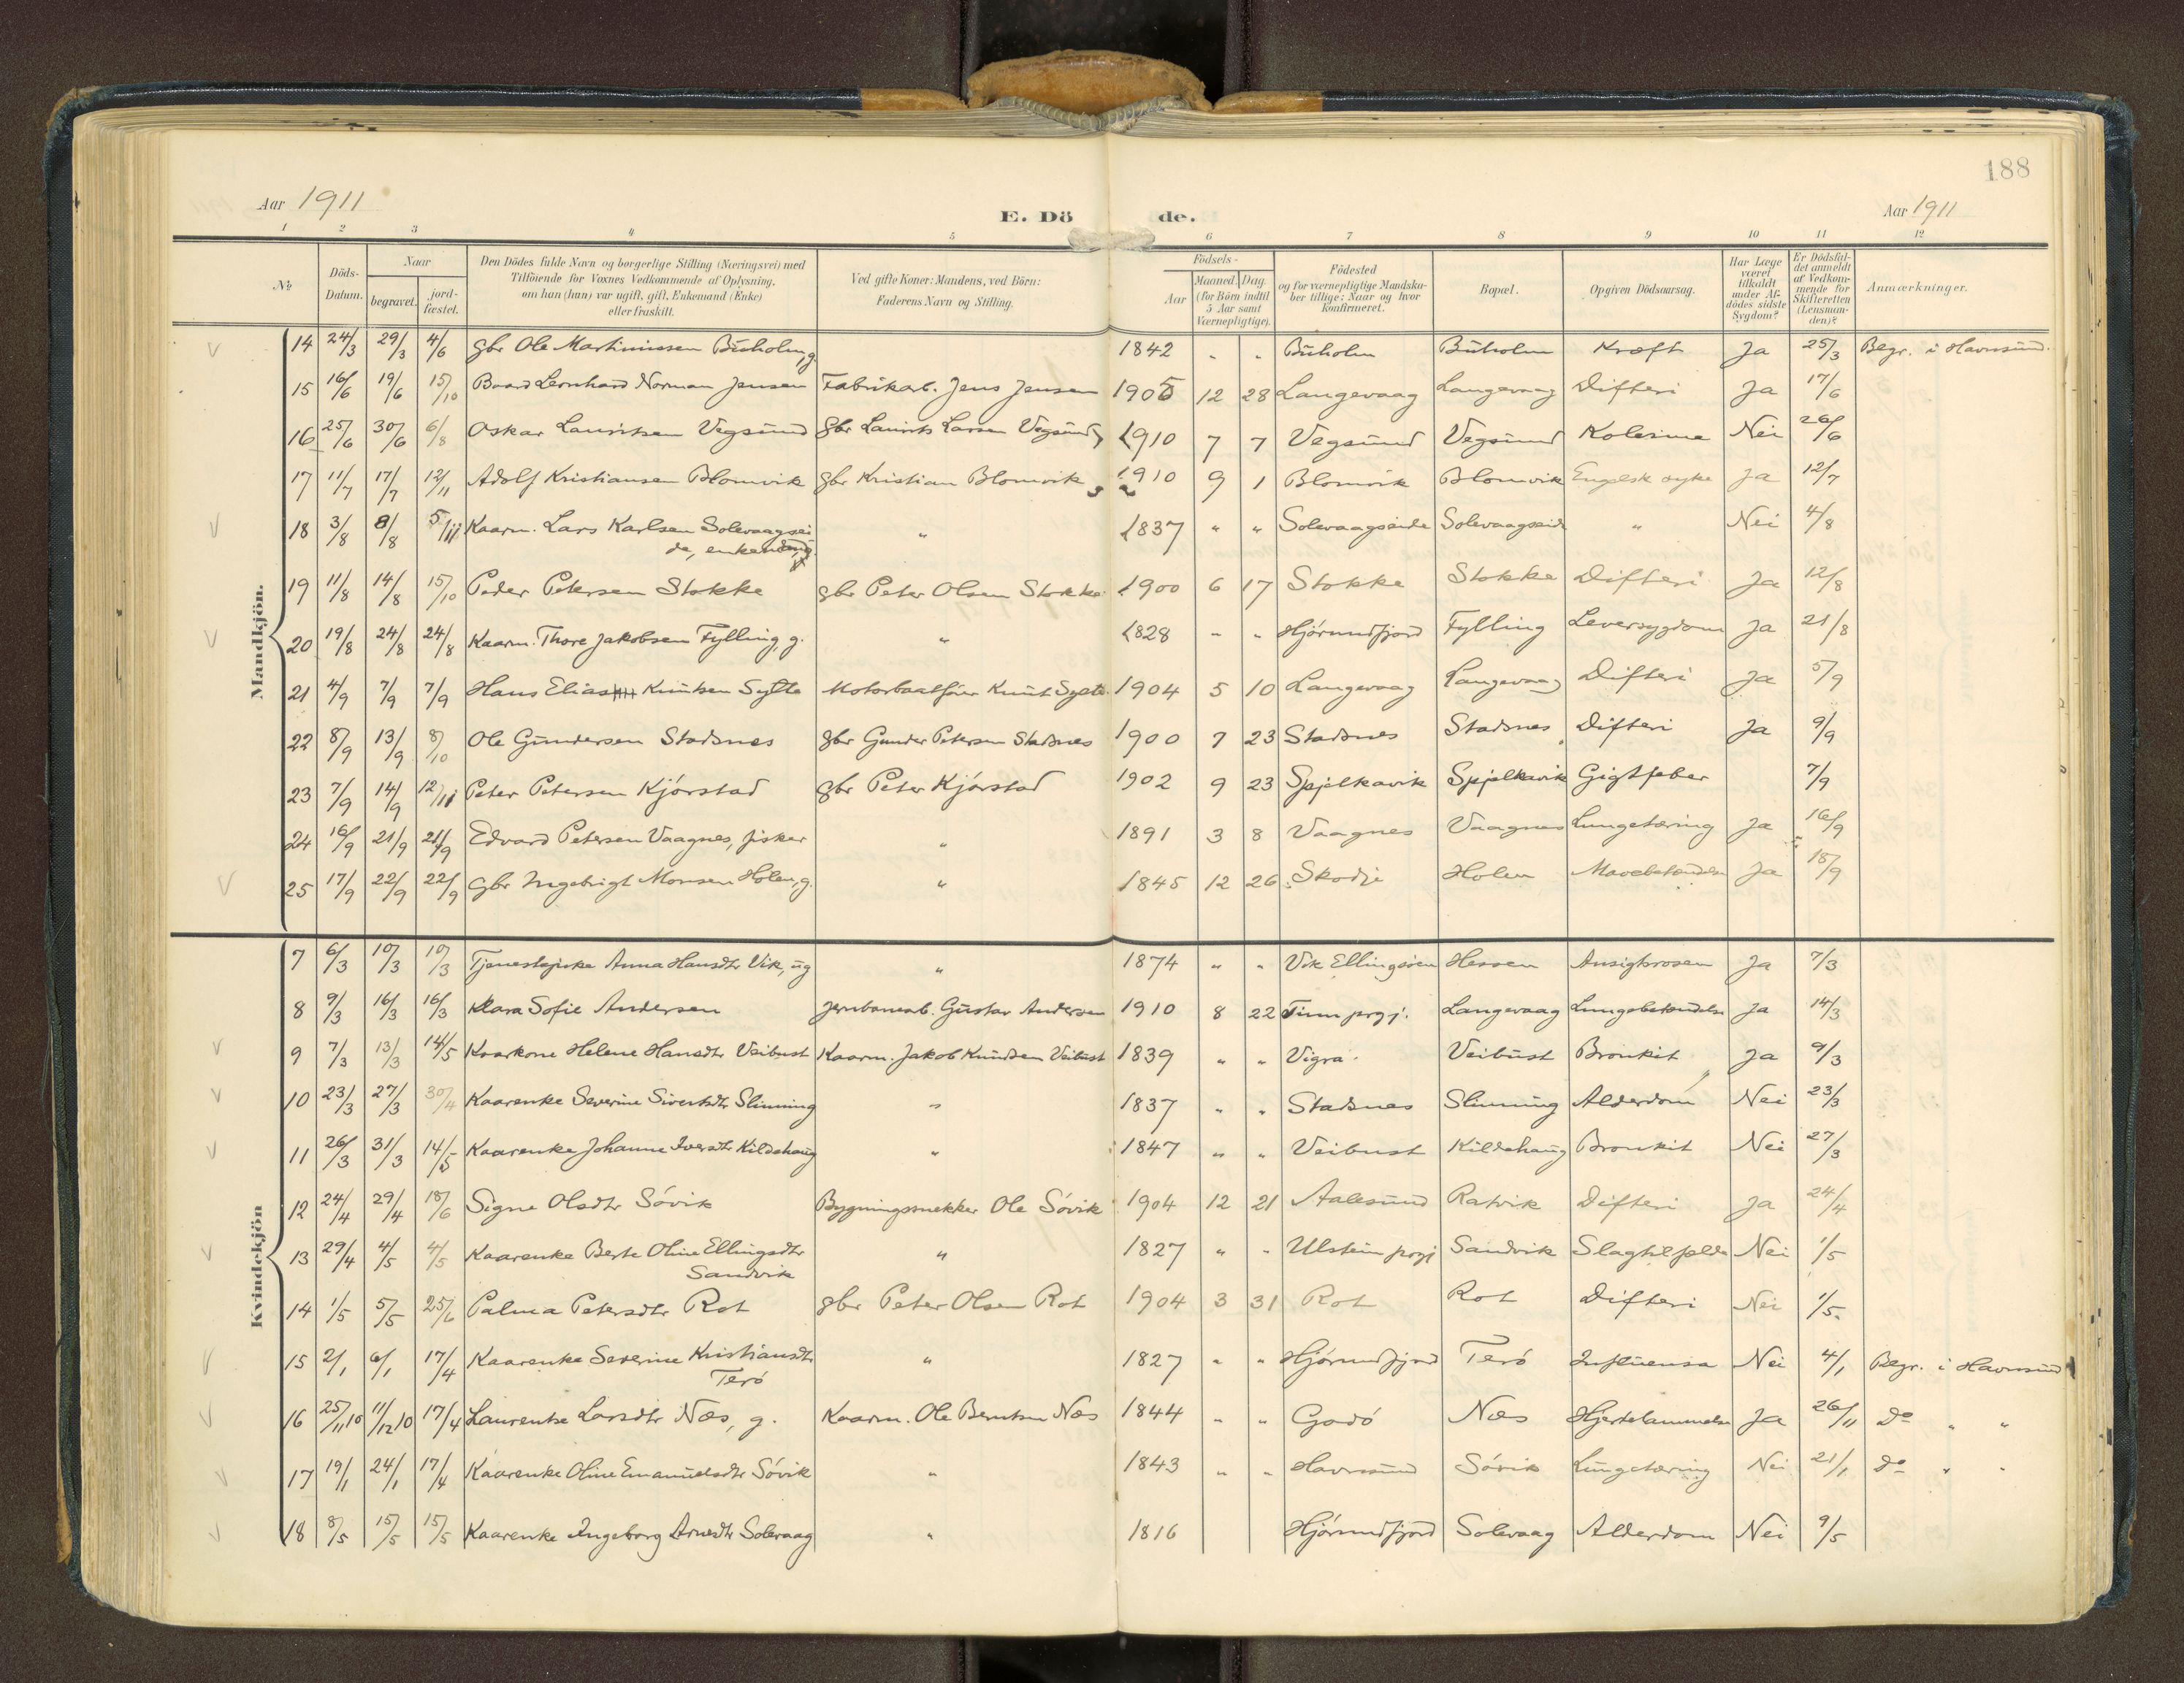 188
Aar 1911
E. Dö de.
Aar 1911
1 2 3 4 5 6 7 8 9 10 11 12
No
Döds-Datum.
Naar
begravet.
jord-fæstet.
Den Dödes fulde Navn og borgerlige Stilling (Næringsvei) med
Tilföiende for Voxnes Vedkommende af Oplysning,
om han (hun) var ugift, gift, Enkemand (Enke)
eller fraskilt.
Ved gifte Koner: Mandens, ved Börn:
Faderens Navn og Stilling.
Födsels-
Aar
Maaned. Dag.
(for Börn indtil
5 Aar samt
Værnepligtige).
Födested
og for værnepligtige Mandska-
ber tillige: Naar og hvor
Konfirmeret.
Bopæl.
Opgiven Dödsaarsag.
Har Læge
været
tilkaldt
under Af-
dödes sidste
Sygdom?
Er Dödsfal-
det anmeldt
af Vedkom-
mende for
Skifteretten
(Lensman-
den)?
Anmærkninger.
Mandkjön.
14 24/3 29/3 4/6 gbr Ole Martinussen Buholm, g. 1842 " " Buholm Buholm Kræft Ja 25/3 Begr. i Havnsund.
15 16/6 19/6 15/10 Baard Lernhard Norman Jensen Fabrikarb. Jens Jensen 1905 12 28 Langevaag Langevaag Difteri Ja 17/6
16 25/6 30/6 6/8 Oskar Lauritsen Vegsund gbr Laurits Larsen Vegsund 1910 7 7 Vegsund Vegsund Kolerine Nei 26/6
17 11/7 17/7 12/11 Adolf Kristiansen Blomvik gbr Kristian Blomvik 1910 9 1 Blomvik Blomvik Engelsk syke Ja 12/7
18 3/8 8/8 5/11 Kaarm. Lars Karlsen Solevaagsei " 1837 " " Solevaagseide Solevaagseid " Nei 4/8
de, enkemand
19 11/8 14/8 15/10 Peder Petersen Stokke gbr Peter Olsen Stokke 1900 6 17 Stokke Stokke Difteri Ja 12/8
20 19/8 24/8 24/8 Kaarm. Thore Jakobsen Fylling, g. " 1828 " " Hjörundfjord Fylling Leversygdom Ja 21/8
21 4/9 7/9 7/9 Hans Elias Knutsen Sylte Motorbaatförer Knut Sylte 1904 5 10 Langevaag Langevaag Difteri Ja 5/9
22 8/9 13/9 8/10 Ole Gundersen Stadsnes gbr Gunder Petersen Stadsnes 1900 7 23 Stadsnes Stadsnes Difteri Ja 9/9
23 7/9 14/9 12/11 Peter Petersen Kjörstad gbr Peter Kjörstad 1902 9 23 Spjelkavik Spjelkavik Gigtfeber 7/9
24 16/9 21/9 21/9 Edvard Petersen Vaagnes, fisker " 1891 3 8 Vaagnes Vaagnes Lungetæring Ja 16/9
25 17/9 22/9 22/9 Gbr Ingebrigt Monsen Holen, g. " 1845 12 26 Skodje Holen Mavebetændelse Ja 18/9
Kvindekjön
7 6/3 10/3 10/3 Tjenestepike Anna Hansdtr Vik, ug " 1874 " " Vik Ellingsöen Hessen Ansigtsrosen Ja 7/3
8 9/3 16/3 16/3 Klara Sofie Andersen Jernbanearb. Gustav Andersen 1910 8 22 Tinn prgj. Langevaag Lungebetændelse Ja 14/3
9 7/3 13/3 14/5 Kaarkone Helene Hansdtr Veibust Kaarm. Jakob Knudsen Veibust 1839 " " Vigra Veibust Bronkit Ja 9/3
10 23/3 27/3 30/4 Kaarenke Severine Sivertsdtr Slinning " 1837 " " Stadsnes Slinning Alderdom Nei 23/3
11 26/3 31/3 14/5 Kaarenke Johanne Iversdtr Kildehaug " 1847 " " Veibust Kildehaug Bronkit Nei 27/3
12 24/4 29/4 18/6 Signe Olsdtr Sövik Bygningssnekker Ole Sövik 1904 12 21 Aalesund Ratvik Difteri Ja 24/4
13 29/4 4/5 4/5 Kaarenke Berte Oline Ellingsdtr " 1827 " " Ulstein prgj Sandvik Slagtilfælde Nei 1/5
Sandvik
14 1/5 5/5 25/6 Palma Petersdtr Rot gbr Peter Olsen Rot 1904 3 31 Rot Rot Difteri Nei 1/5
15 2/1 6/1 17/4 Kaarenke Severine Kristiansdtr " 1827 " " Hjörundfjord Terö Influensa Nei 4/1 Begr. i Havnsund
Terö
16 25/11 10 11/12 10 17/4 Laurentse Larsdtr Næs, g. Kaarm. Ole Berntsen Næs 1844 " " Godö Næs Hjertelammelse Ja 26/11 do " "
17 19/1 24/1 17/4 Kaarenke Oline Emanuelsdtr Sövik " 1843 " " Havnsund Sövik Lungetæring Nei 21/1 do " "
18 8/5 15/5 15/5 Kaarenke Ingeborg Arnesdtr Solevaag " 1816 Hjörundfjord Solevaag Alderdom Nei 9/5